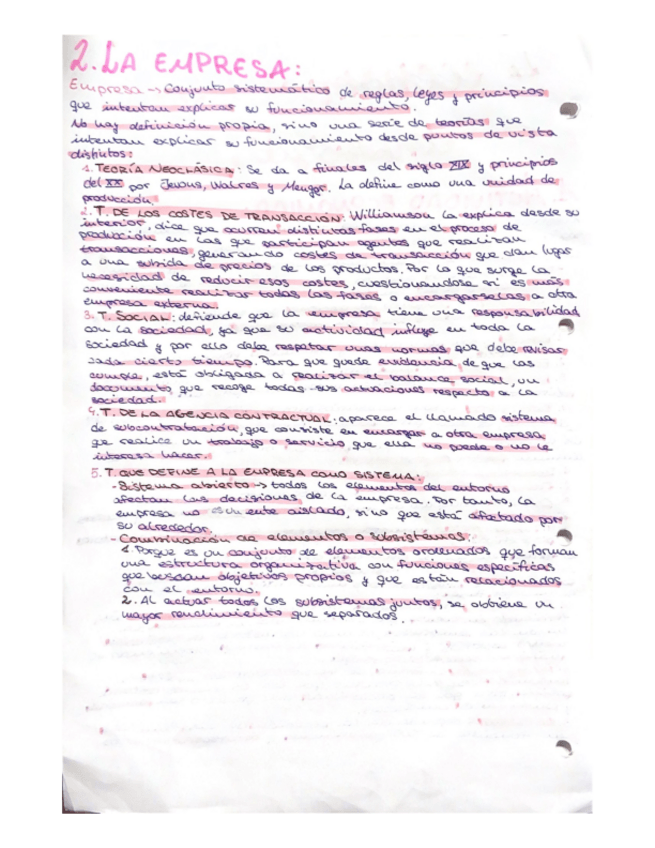 2. LA EMPRESA:
Empresa → Conjunto sistemático de reglas, leyes y principios
que intentan explicar su funcionamiento.
No hay definición propia, sino una serie de teorías que
intentan explicar su funcionamiento desde puntos de vista
distintos:
1. TEORÍA NEOCLÁSICA: Se da a finales del siglo XIX y principios
del XX por Jevons, Walres y Menger. La define como una unidad de
producción.
2. T. DE LOS COSTES DE TRANSACCIÓN: Williamson la explica desde su
interior, dice que ocurren distintas fases en el proceso de
producción en las que participan agentes que realizan
transacciones, generando costes de transacción que dan lugar
a una subida de precios de los productos. Por lo que surge la
necesidad de reducir esos costes, cuestionandose si es más
conveniente realizar todas las fases o encargarselas a otra
empresa externa.
3. T. SOCIAL: defiende que la empresa tiene una responsabilidad
con la sociedad, ya que su actividad influye en toda la
sociedad y por ello debe respetar unas normas que debe revisar
cada cierto tiempo. Para que quede evidencia de que las
cumple, está obligada a realizar el balance social, un
documento que recoge todas sus actuaciones respecto a la
sociedad.
4. T. DE LA AGENCIA CONTRACTUAL: aparece el llamado sistema
de subcontratación, que consiste en encargar a otra empresa
que realice un trabajo o servicio que ella no puede o no le
interesa hacer.
5. T. QUE DEFINE A LA EMPRESA COMO SISTEMA:
- Sistema abierto → todos los elementos del entorno
afectan las decisiones de la empresa. Por tanto, la
empresa no es un ente aislado, sino que está afectado por
su alrededor.
- Combinación de elementos o subsistemas:
1. Porque es un conjunto de elementos ordenados que forman
una estructura organizativa con funciones específicas
que buscan objetivos propios y que están relacionados
con el entorno.
2. Al actuar todos los subsistemas juntos, se obtiene un
mayor rendimiento que separados.